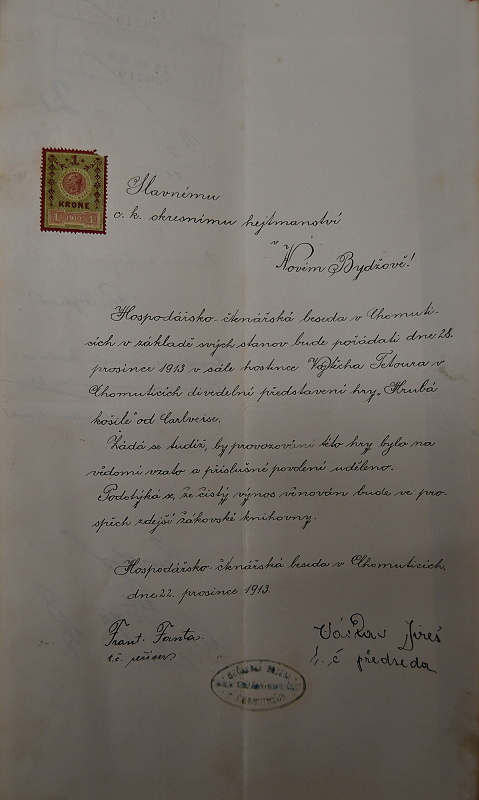 1
KRONE
1 1910 1
Slavnému
c. k. okresnímu hejtmanství
v
Novém Bydžově!
Hospodářsko-čtenářská beseda v Chomuti-
cích v základě svých stanov bude pořádati dne 28.
prosince 1913 v sále hostince Vojtěcha Tetoura v
Chomuticích divedelní představení hry „Hrubá
košile" od Carlweise.
Žádá se tudíž, by provozování této hry bylo na
vědomí vzato a příslušné povolení uděleno.
Podotýká se, že čistý výnos věnován bude ve pro-
spěch zdejší žákovské knihovny.
Hospodářsko-čtenářská beseda v Chomuticích,
dne 22. prosince 1913.
Frant. Fanta.
t. č.
Václav Jireš
t. č předseda